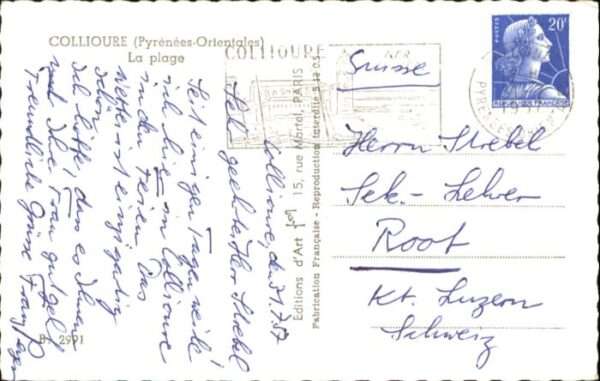 COLLIOURE (Pyrénées-Orientales)
La plage
COLLIOURE
POSTES
20F
RÉPUBLIQUE FRANÇAISE
Collioure, den 31.7.57
Sehr geehrter Herr Strebel
Seit einigen Tagen weile
ich hier in Collioure
in den Ferien. Das
Wetter ist einzigartig
schön.
Ich hoffe, dass es Ihnen
und Ihrer Frau gut geht
Freundliche Grüsse Franz
Editions d'Art
15, rue Martel, PARIS
Fabrication Française - Reproduction Interdite
Suisse
Herrn Strebel
Sek.-Lehrer
Root
Kt. Luzern
Schweiz
2991